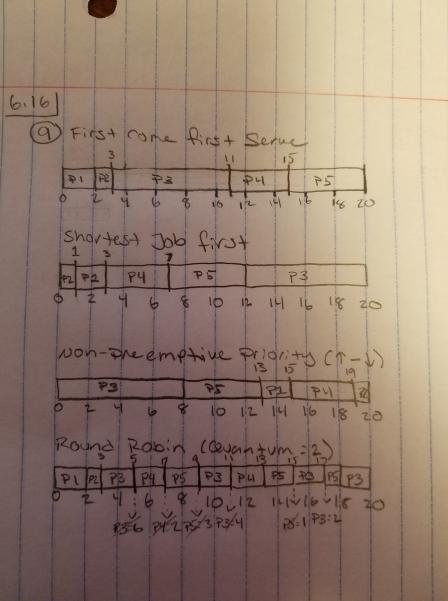 6.16
(a) First come first Serve
3 11 15
P1 P2 P3 P4 P5
0 2 4 6 8 10 12 14 16 18 20
Shortest Job first
1 3 7
P2 P1 P4 P5 P3
0 2 4 6 8 10 12 14 16 18 20
Non-preemptive Priority (↑-↓)
13 15 19
P3 P5 P1 P4 P2
0 2 4 6 8 10 12 14 16 18 20
Round Robin (Quantum = 2)
3 5 7 9 11 13 15 17
P1 P2 P3 P4 P5 P3 P4 P5 P3 P5 P3
2 4 6 8 10 12 14 16 18 20
P3=6 P4=2 P5=3 P3=4 P5=1 P3=2